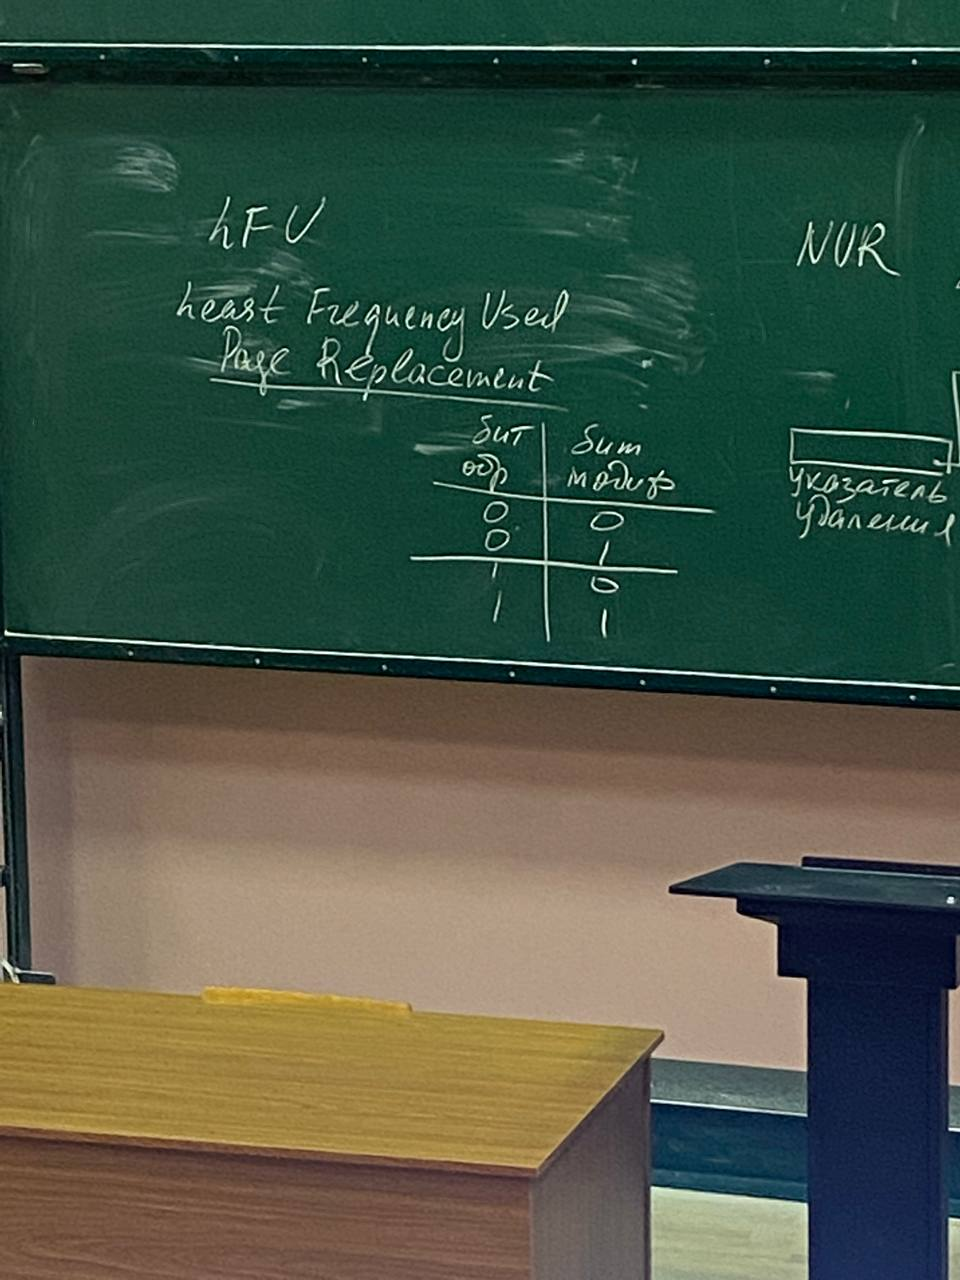 LFU
Least Frequency Used
Page Replacement
бит бит
обр модиф
0 0
0 1
1 0
1 1
NUR
указатель
удаления